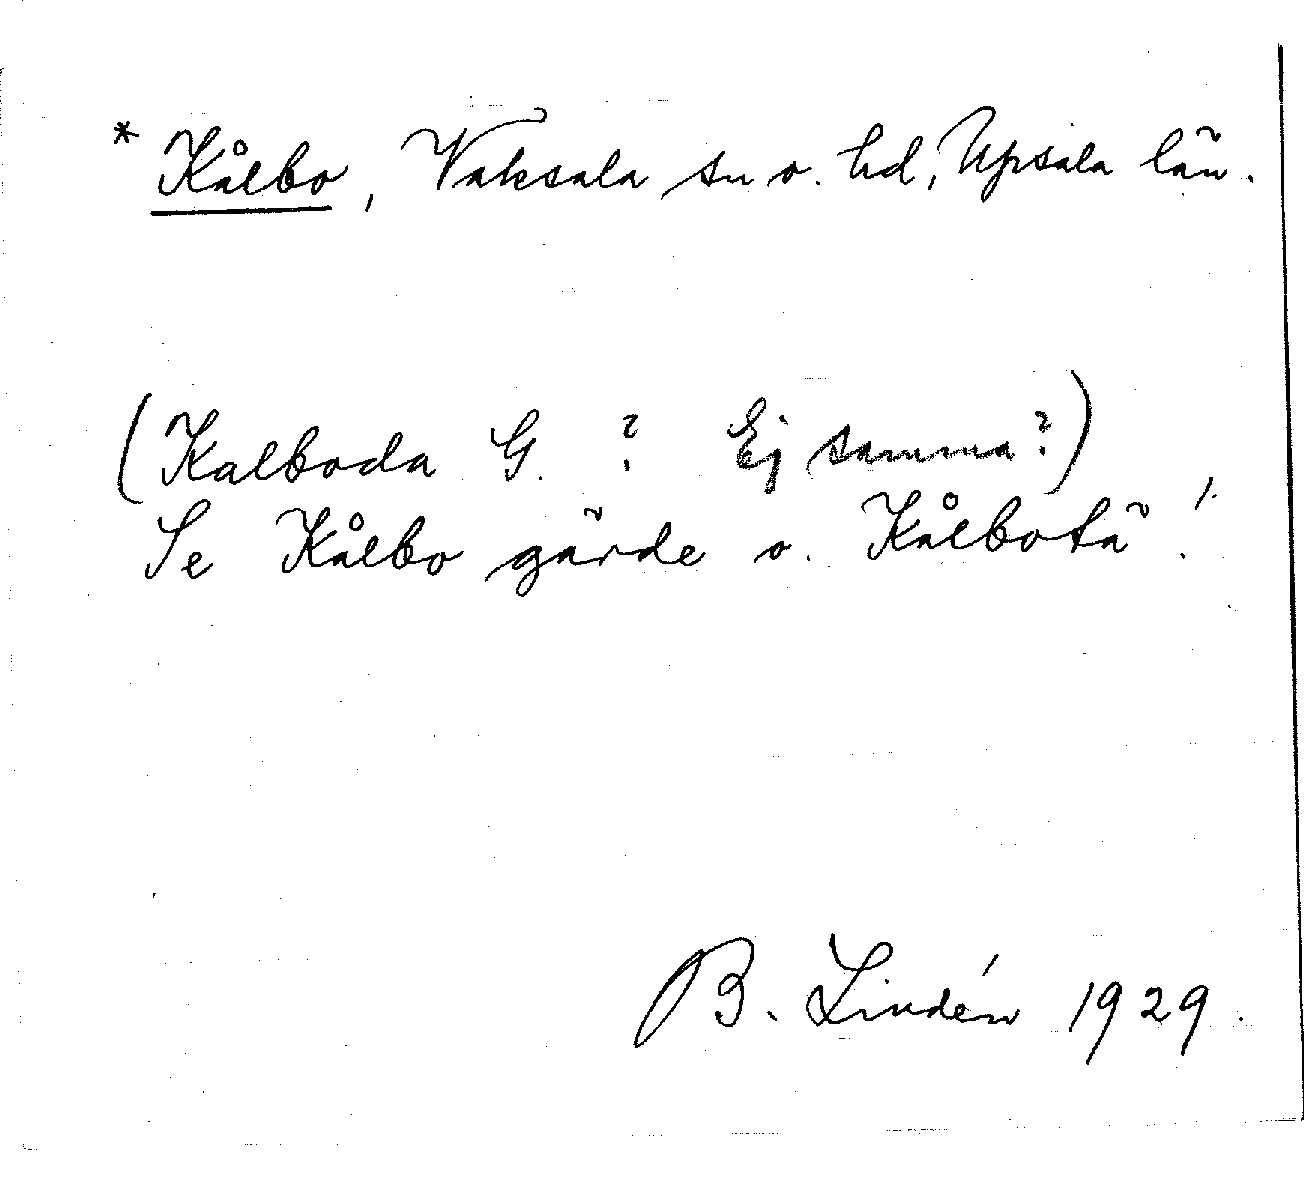 * Kålbo, Vaksala sn o. hd, Upsala län.
(Kalboda G. ? Ej samma?)
Se Kålbo gärde o. Kålbotä!
B. Lindén 1929.